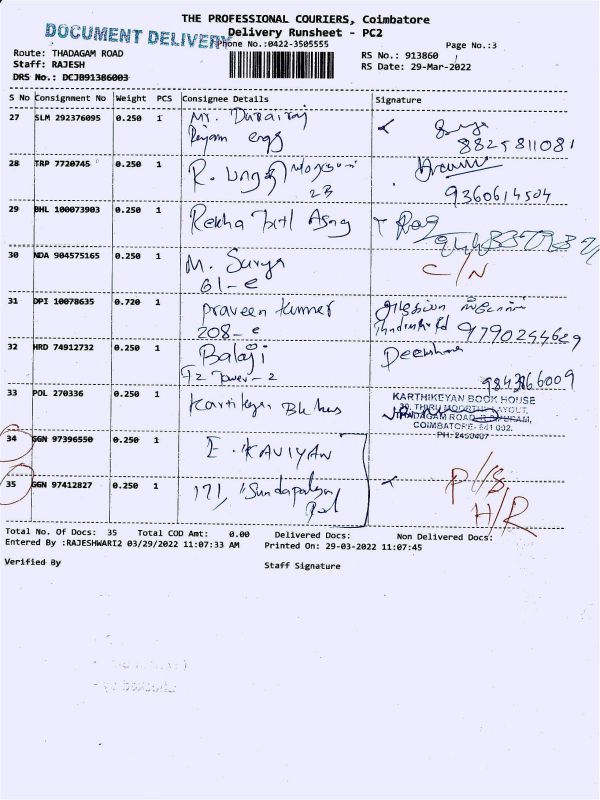 THE PROFESSIONAL COURIERS, Coimbatore
DOCUMENT DELIVERY
Delivery Runsheet - PC2
Phone No.:0422-3505555
Page No.:3
Route: THADAGAM ROAD
RS No.: 913860
Staff: RAJESH
RS Date: 29-Mar-2022
DRS No.: DCJB91386003
S No Consignment No Weight PCS Consignee Details Signature
27 SLM 292376095 0.250 1 Mr. Durairaj
8825811081
28 TRP 7720745 0.250 1 R.
2B
9360614504
29 BHL 100073903 0.250 1 Rekha
30 NDA 904575165 0.250 1 M. Surya
61-e
C/N
31 DPI 10078635 0.720 1 Praveen Kumar
208-e
9790244629
32 HRD 74912732 0.250 1 Balaji
F2 Tower-2
Deekshana
9843866009
33 POL 270336 0.250 1
KARTHIKEYAN BOOK HOUSE
30, THIRU MOORTHI LAYOUT,
THADAGAM ROAD, R.S.PURAM,
COIMBATORE-641 002.
PH: 2450407
34 GGN 97396550 0.250 1 E. KAVIYAN
35 GGN 97412827 0.250 1 171,
P/S
H/R
Total No. Of Docs: 35 Total COD Amt: 0.00 Delivered Docs: Non Delivered Docs:
Entered By :RAJESHWARI2 03/29/2022 11:07:33 AM Printed On: 29-03-2022 11:07:45
Verified By
Staff Signature